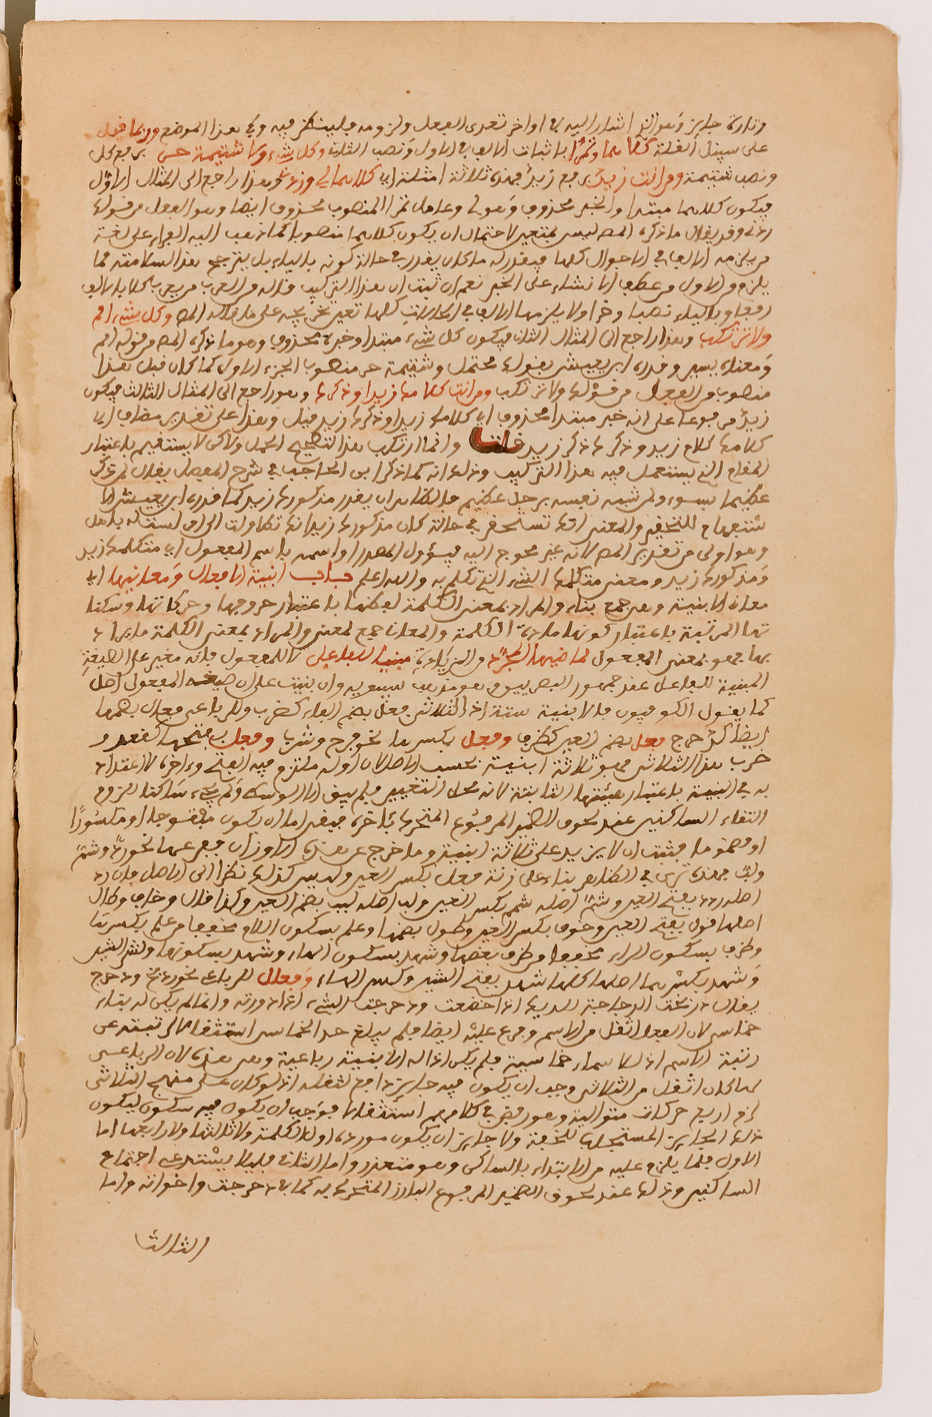 وتارة جايز وهو الذي اشار اليه في اواخر تعدى الفعل ولزومه فلينظر فيه وفي هذا الموضع وربما قيل
على سبيل القلة كلاهما وتمرا باثبات الالف في الاول ونصب الثاني وكل شيء ولا شتيمة حر برفع كل
ونصب شتيمة ومن انت زيد برفع زيد فهذه ثلاثة امثلة اي كلاهما لي وزدني وهذا راجع الى المثال الاول
فيكون كلاهما مبتدا والخبر محذوف وهو لي وعامل تمرا المنصوب محذوف ايضا وهو الفعل من قوله
زدني وقد يقال ما ذكره المص ليس بمتعين لاحتمال ان يكون كلاهما منصوبا كما ذهب اليه الفراء على لغة
من يلزمه الالف في الاحوال كلها فيقدر له ما كان يقدر في حالة كونه بالياء بل يترجح هذا لسلامته مما
يلزم من الاول من عطف الانشاء على الخبر نعم ان ثبت ان هذا التركيب قاله من العرب من يعرب كلا بالالف
رفعا وبالياء نصبا وجرا ولا يلزمها الالف في الحالات كلها تعين تخريجه على ما قاله المص وكل شيء امم
ولا ترتكب وهذا راجع الى المثال الثاني فيكون كل شيء مبتدا وخبره محذوف وهو ما ذكره المص وقوله امم
ومعناه يسير وقدره ابن يعيش بقوله محتمل وشتيمة حر منصوب الجزء الاول كما كان قبل هذا
منصوب من الفعل من قوله ولا ترتكب ومن انت كلامك زيد او ذكرك وهو راجع الى المثال الثالث فيكون
زيد مرفوعا على انه خبر مبتدا محذوف اي كلامك زيد او ذكرك زيد قيل وهذا على تقدير مضاف اي
كلامك كلام زيد وذكرك ذكر زيد قلت وانما ارتكب هذا لتصحيح الحمل ولاكن لا يستقيم باعتبار
المقام الذي يستعمل فيه هذا التركيب وذلك انه كما ذكر ابن الحاجب في شرح المفصل يقال لمن ذكر
عظيما بسوء ولمن شبه نفسه برجل عظيم فالظاهر ان يقدر مذكورك زيد كما قدره ابن يعيش الا
شتبعهام للتحقير والمعنى انك تستحقر في حالة كان مذكورك زيدا
وهو اولى من تقدير المص لانه غير محوج اليه فيؤول المصدر او اسمه باسم المفعول اي متكلمك زيد
ومذكورك زيد ومعنى متكلمك الشيء الذي تكلم به والله اعلم باب ابنية الافعال ومعانيها اي
معاني الابنية وهي جمع بناء والمراد بمعنى الكلمة لفظها باعتبار حروفها وحركاتها وسكنا
تها المرتبة باعتبار كونها مادة الكلمة والمعاني جمع لمعنى والمراد بمعنى الكلمة ما يراد
بها فهو بمعنى المفعول لماضيها المجرد من الزيادة مبنيا للفاعل لا للمفعول فانه مغير عن الصيغة
المبنية للفاعل عند جمهور البصريين وهو مذهب سيبويه وان بنيت على ان صيغة المفعول اصل
كما يقول الكوفيون فالابنية ستة اذ الثلاثي فعل بضم الفاء كضرب وللرباعي فعلل بضمها
ايضا كدحرج فعل بضم العين كظرف وفعل بكسرها نحو فرح وشرب وفعل بفتحها كقعد و
ضرب هذا الثلاثي فهو ثلاثة ابنية بحسب الاصل لان اوله ملتزم فيه الفتح وءاخره لا اعتداد
به في البنية باعتبار هيئتها الثابتة لانه محل التغيير فلم يبق الا الوسط ولم يجيء ساكنا للزوم
التقاء الساكنين عند لحوق الضمير المرفوع المتحرك بآخره فبقي اما ان يكون مفتوحا او مكسورا
او مضموما فثبت ان لا يزيد على ثلاثة ابنية وما خرج عن هذه الاوزان ففرع عنها نحو رد وشم
ولب فهذه ترى في الظاهر بناء على زنة فعل بكسر العين وليس كذلك نظرا الى الاصل فان رد
اصله ردد بفتح العين وشم اصله شمم بكسر العين ولب اصله لبب بضم العين وكذا قال وخاف وطال
اصلها قول بفتح العين وخوف بكسر العين وطول بضمها وعلم بسكون اللام مخففا من علم بكسرها
وظرف بسكون الراء مخففا من ظرف بضمها وشهد بسكون الهاء وشهد بسكونها وكسر الشين
وشهد بكسرهما اصلها كلها شهد بفتح الشين وكسر الهاء وفعلل للرباعي نحو دربخ ودحرج
يقال دربخت الدجاجة للديك اذا خضعت ودحرجت الشيء اذا دورته وانما لم يكن له بناء
خماسي لان الفعل اثقل من الاسم وفرع عليه ايضا فلم يبلغ حد الخماسي استثقالا لمرتبته عن
رتبة الاسم اذ للاسماء خماسية فلم يكن اذا له الا ابنية رباعية وهي هذه لان الرباعي
لما كان اثقل من الثلاثي وجب ان يكون فيه جابر دافع لثقله اذ لو كان على منهج الثلاثي
لزم اربع حركات متوالية وهو رفض في كلامهم استثقالا فوجب ان يكون فيه سكون ليكون
ذلك الجابر المستجلب للخفة ولا جايز ان يكون مورده اول الكلمة ولا ثالثها ولا رابعها اما
الاول فلما يلزم عليه من الابتداء بالساكن وهو متعذر واما الثالث فلئلا يستدعي اجتماع
الساكنين وذلك عند لحوق الضمير المرفوع البارز المتحرك به كما في دحرجت واخواته واما
الثالث